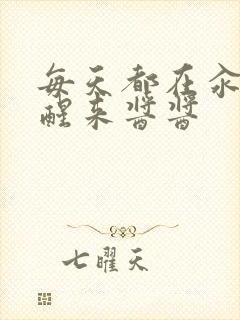 每天都在汆
醒来酱酱
七曜天